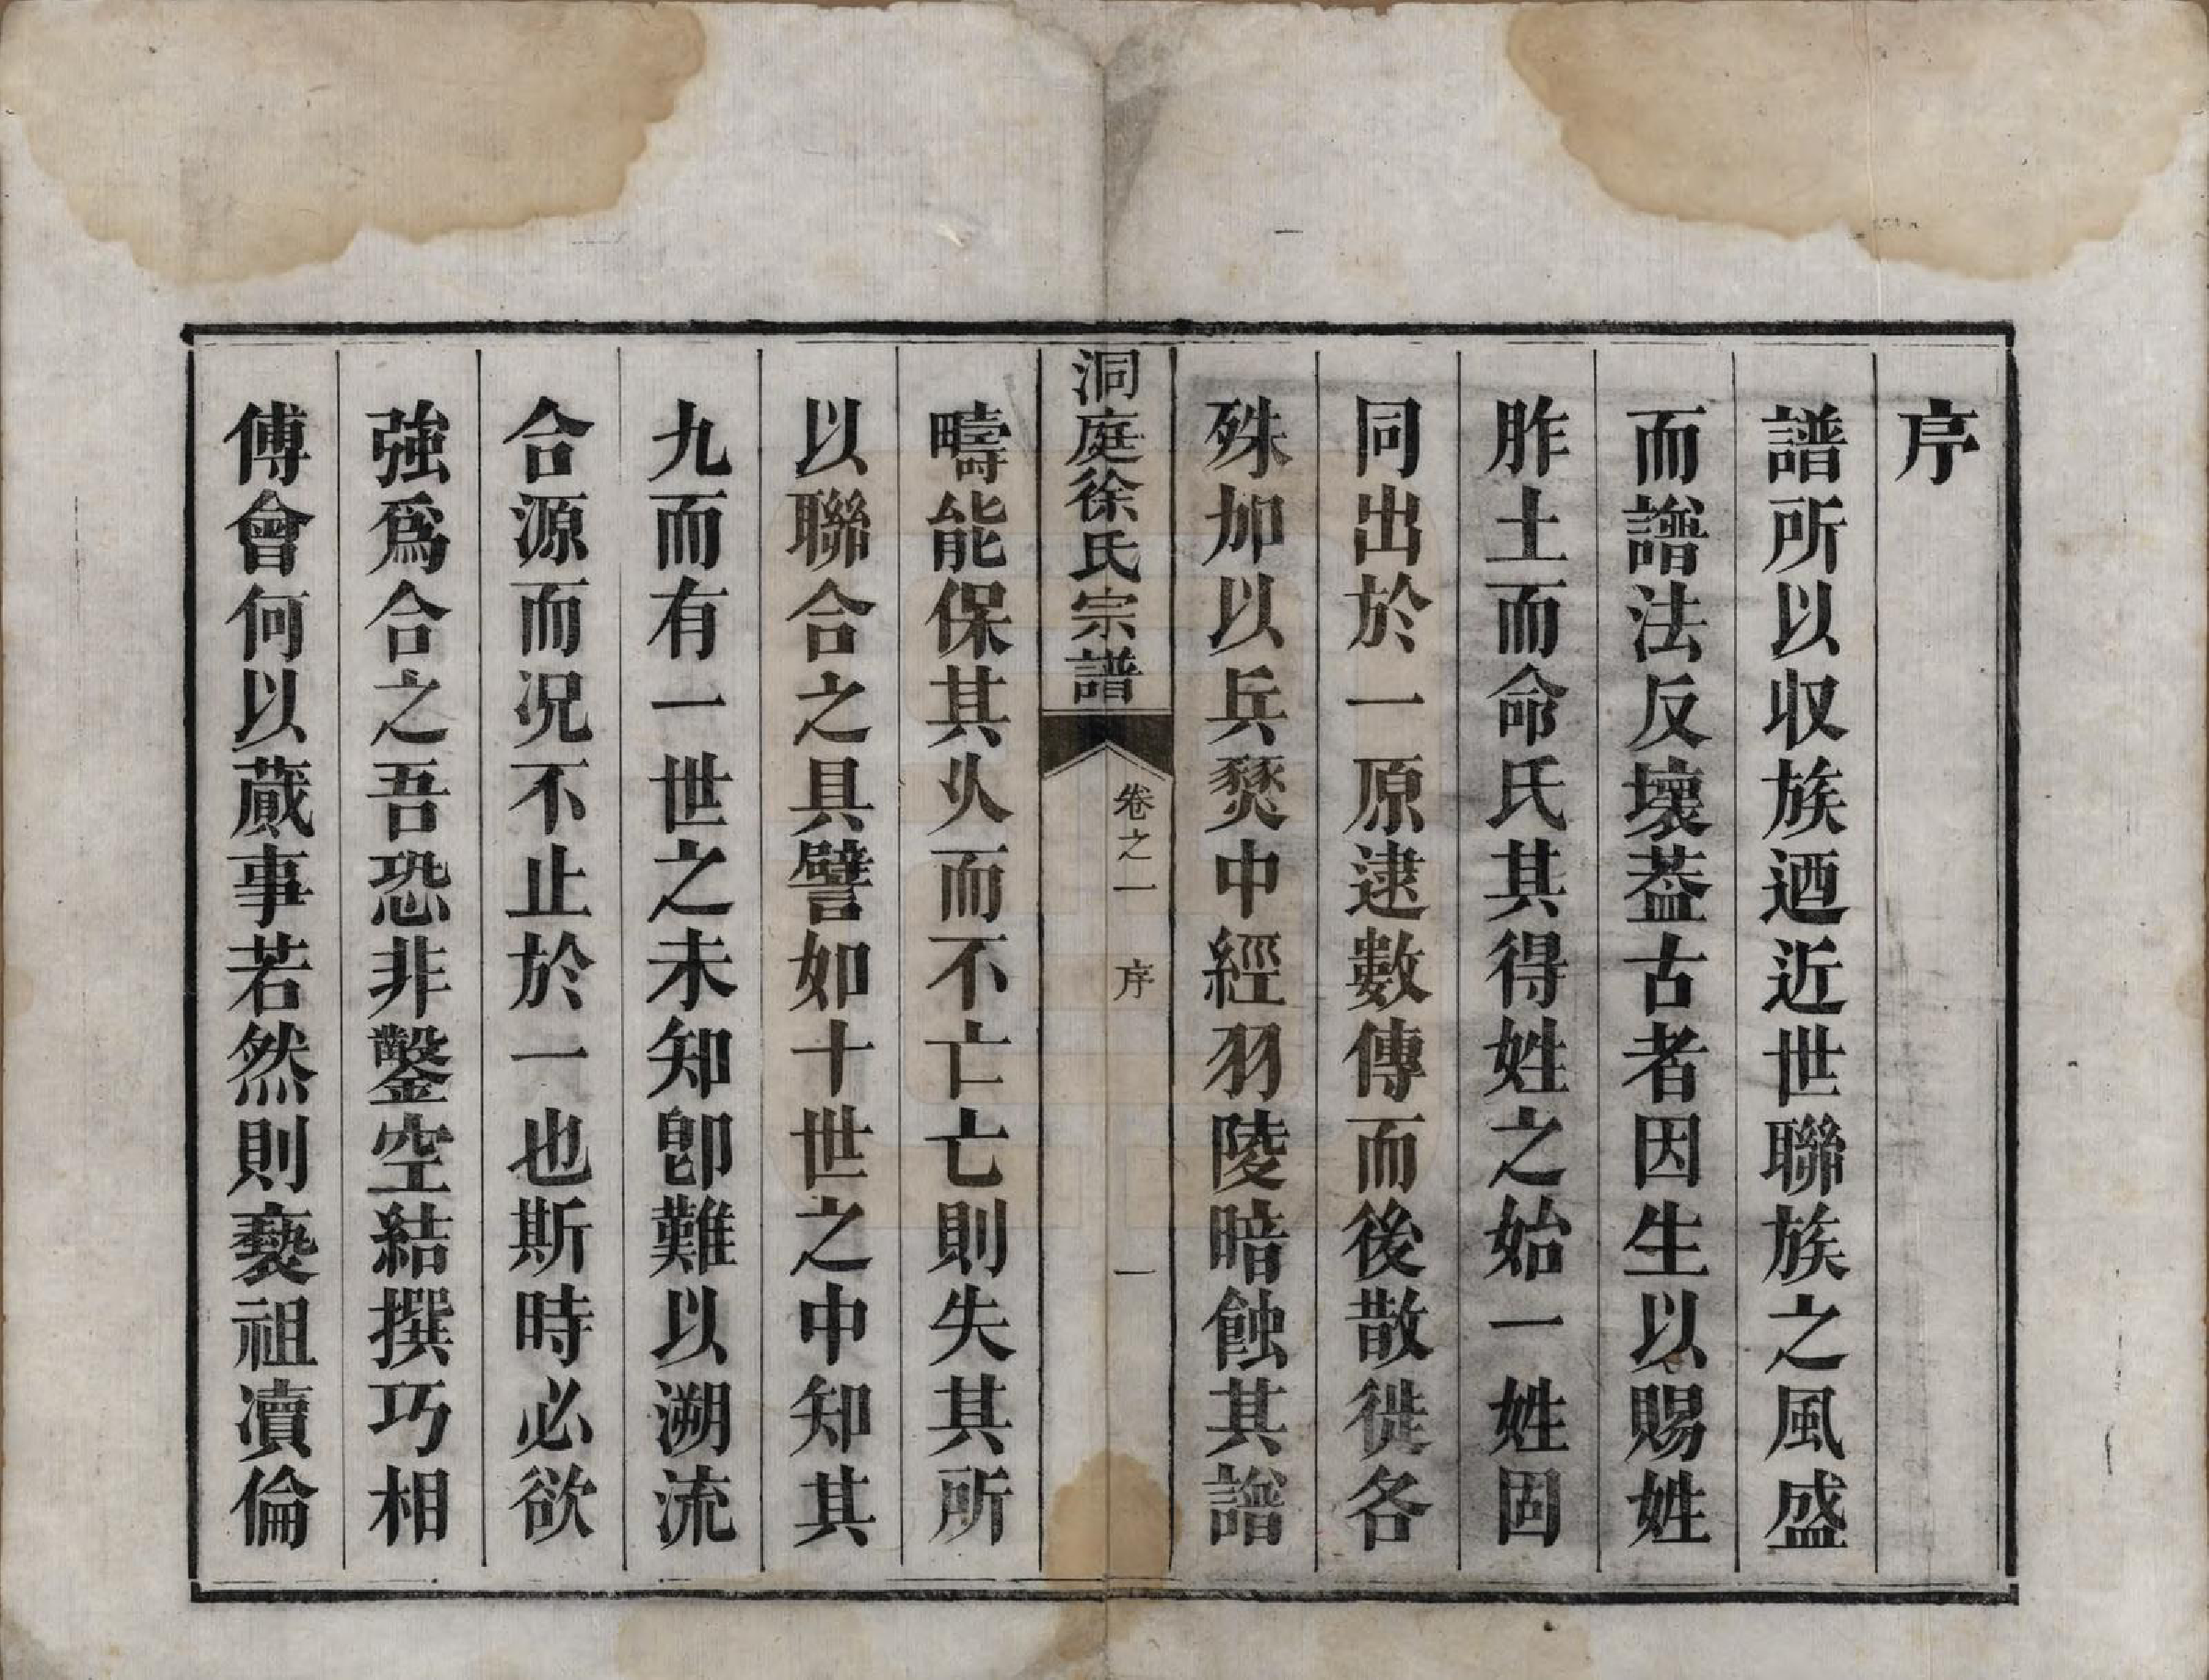 序
譜所以収族迺近世聯族之風盛
而譜法反壞葢古者因生以賜姓
胙土而命氏其得姓之始一姓固
同出於一原逮數傳而後散徙各
殊加以兵燹中經羽陵暗蝕其譜
洞庭徐氏宗譜
卷之一 序 一
疇能保其乆而不亡亡則失其所
以聯合之具譬如十世之中知其
九而有一世之未知卽難以溯流
合源而況不止於一也斯時必欲
強爲合之吾恐非鑿空結撰巧相
傅會何以蕆事若然則褻祖瀆倫